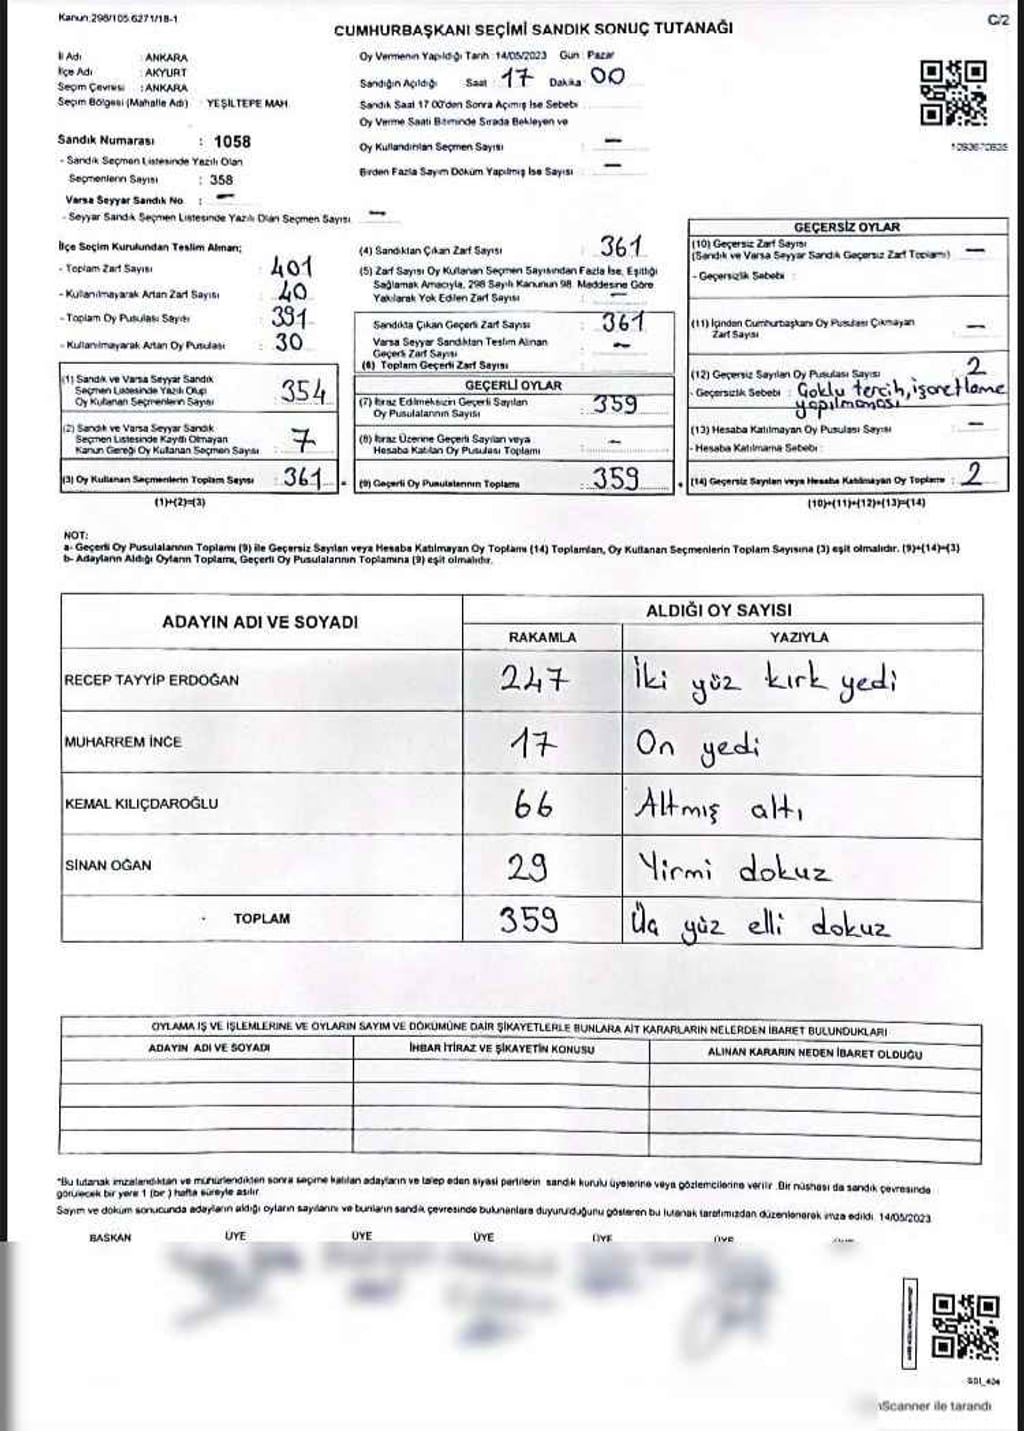 Kanun.298/105.6271/18-1
C/2
CUMHURBAŞKANI SEÇİMİ SANDIK SONUÇ TUTANAĞI
İl Adı : ANKARA
İlçe Adı : AKYURT
Seçim Çevresi : ANKARA
Seçim Bölgesi (Mahalle Adı) : YEŞİLTEPE MAH.
Sandık Numarası : 1058
- Sandık Seçmen Listesinde Yazılı Olan
Seçmenlerin Sayısı : 358
Varsa Seyyar Sandık No : —
- Seyyar Sandık Seçmen Listesinde Yazılı Olan Seçmen Sayısı —
Oy Vermenin Yapıldığı Tarih :14/05/2023 Gün : Pazar
Sandığın Açıldığı Saat : 17 Dakika : 00
Sandık Saat 17.00'den Sonra Açılmış İse Sebebi :
Oy Verme Saati Bitiminde Sırada Bekleyen ve
Oy Kullandırılan Seçmen Sayısı : —
Birden Fazla Sayım Döküm Yapılmış İse Sayısı : —
İlçe Seçim Kurulundan Teslim Alınan;
- Toplam Zarf Sayısı : 401
- Kullanılmayarak Artan Zarf Sayısı : 40
- Toplam Oy Pusulası Sayısı : 391
- Kullanılmayarak Artan Oy Pusulası : 30
(1) Sandık ve Varsa Seyyar Sandık
Seçmen Listesinde Yazılı Olup
Oy Kullanan Seçmenlerin Sayısı : 354
(2) Sandık ve Varsa Seyyar Sandık
Seçmen Listesinde Kayıtlı Olmayan
Kanun Gereği Oy Kullanan Seçmen Sayısı : 7
(3) Oy Kullanan Seçmenlerin Toplam Sayısı : 361
(1)+(2)=(3)
(4) Sandıktan Çıkan Zarf Sayısı : 361
(5) Zarf Sayısı Oy Kullanan Seçmen Sayısından Fazla İse, Eşitliği
Sağlamak Amacıyla, 298 Sayılı Kanunun 98. Maddesine Göre
Yakılarak Yok Edilen Zarf Sayısı : —
Sandıkta Çıkan Geçerli Zarf Sayısı : 361
Varsa Seyyar Sandıktan Teslim Alınan
Geçerli Zarf Sayısı : —
(6) Toplam Geçerli Zarf Sayısı :
GEÇERLİ OYLAR
(7) İtiraz Edilmeksizin Geçerli Sayılan
Oy Pusulalarının Sayısı : 359
(8) İtiraz Üzerine Geçerli Sayılan veya
Hesaba Katılan Oy Pusulası Toplamı : —
(9) Geçerli Oy Pusulalarının Toplamı : 359
GEÇERSİZ OYLAR
(10) Geçersiz Zarf Sayısı
(Sandık ve Varsa Seyyar Sandık Geçersiz Zarf Toplamı) —
- Geçersizlik Sebebi :
(11) İçinden Cumhurbaşkanı Oy Pusulası Çıkmayan
Zarf Sayısı —
(12) Geçersiz Sayılan Oy Pusulası Sayısı 2
- Geçersizlik Sebebi : Çoklu tercih, işaretleme
yapılmaması
(13) Hesaba Katılmayan Oy Pusulası Sayısı —
- Hesaba Katılmama Sebebi :
(14) Geçersiz Sayılan veya Hesaba Katılmayan Oy Toplamı : 2
(10)+(11)+(12)+(13)=(14)
NOT:
a- Geçerli Oy Pusulalarının Toplamı (9) ile Geçersiz Sayılan veya Hesaba Katılmayan Oy Toplamı (14) Toplamları, Oy Kullanan Seçmenlerin Toplam Sayısına (3) eşit olmalıdır. (9)+(14)=(3)
b- Adayların Aldığı Oyların Toplamı, Geçerli Oy Pusulalarının Toplamına (9) eşit olmalıdır.
ADAYIN ADI VE SOYADI ALDIĞI OY SAYISI
RAKAMLA YAZIYLA
RECEP TAYYİP ERDOĞAN 247 İki yüz kırk yedi
MUHARREM İNCE 17 On yedi
KEMAL KILIÇDAROĞLU 66 Altmış altı
SİNAN OĞAN 29 Yirmi dokuz
TOPLAM 359 Üç yüz elli dokuz
OYLAMA İŞ VE İŞLEMLERİNE VE OYLARIN SAYIM VE DÖKÜMÜNE DAİR ŞİKAYETLERLE BUNLARA AİT KARARLARIN NELERDEN İBARET BULUNDUKLARI
ADAYIN ADI VE SOYADI İHBAR İTİRAZ VE ŞİKAYETİN KONUSU ALINAN KARARIN NEDEN İBARET OLDUĞU
*Bu tutanak imzalandıktan ve mühürlendikten sonra seçime katılan adayların ve talep eden siyasi partilerin sandık kurulu üyelerine veya gözlemcilerine verilir. Bir nüshası da sandık çevresinde
görülecek bir yere 1 (bir ) hafta süreyle asılır.
Sayım ve döküm sonucunda adayların aldığı oyların sayılarını ve bunların sandık çevresinde bulunanlara duyurulduğunu gösteren bu tutanak tarafımızdan düzenlenerek imza edildi. 14/05/2023
BAŞKAN ÜYE ÜYE ÜYE ÜYE ÜYE
Scanner ile tarandı